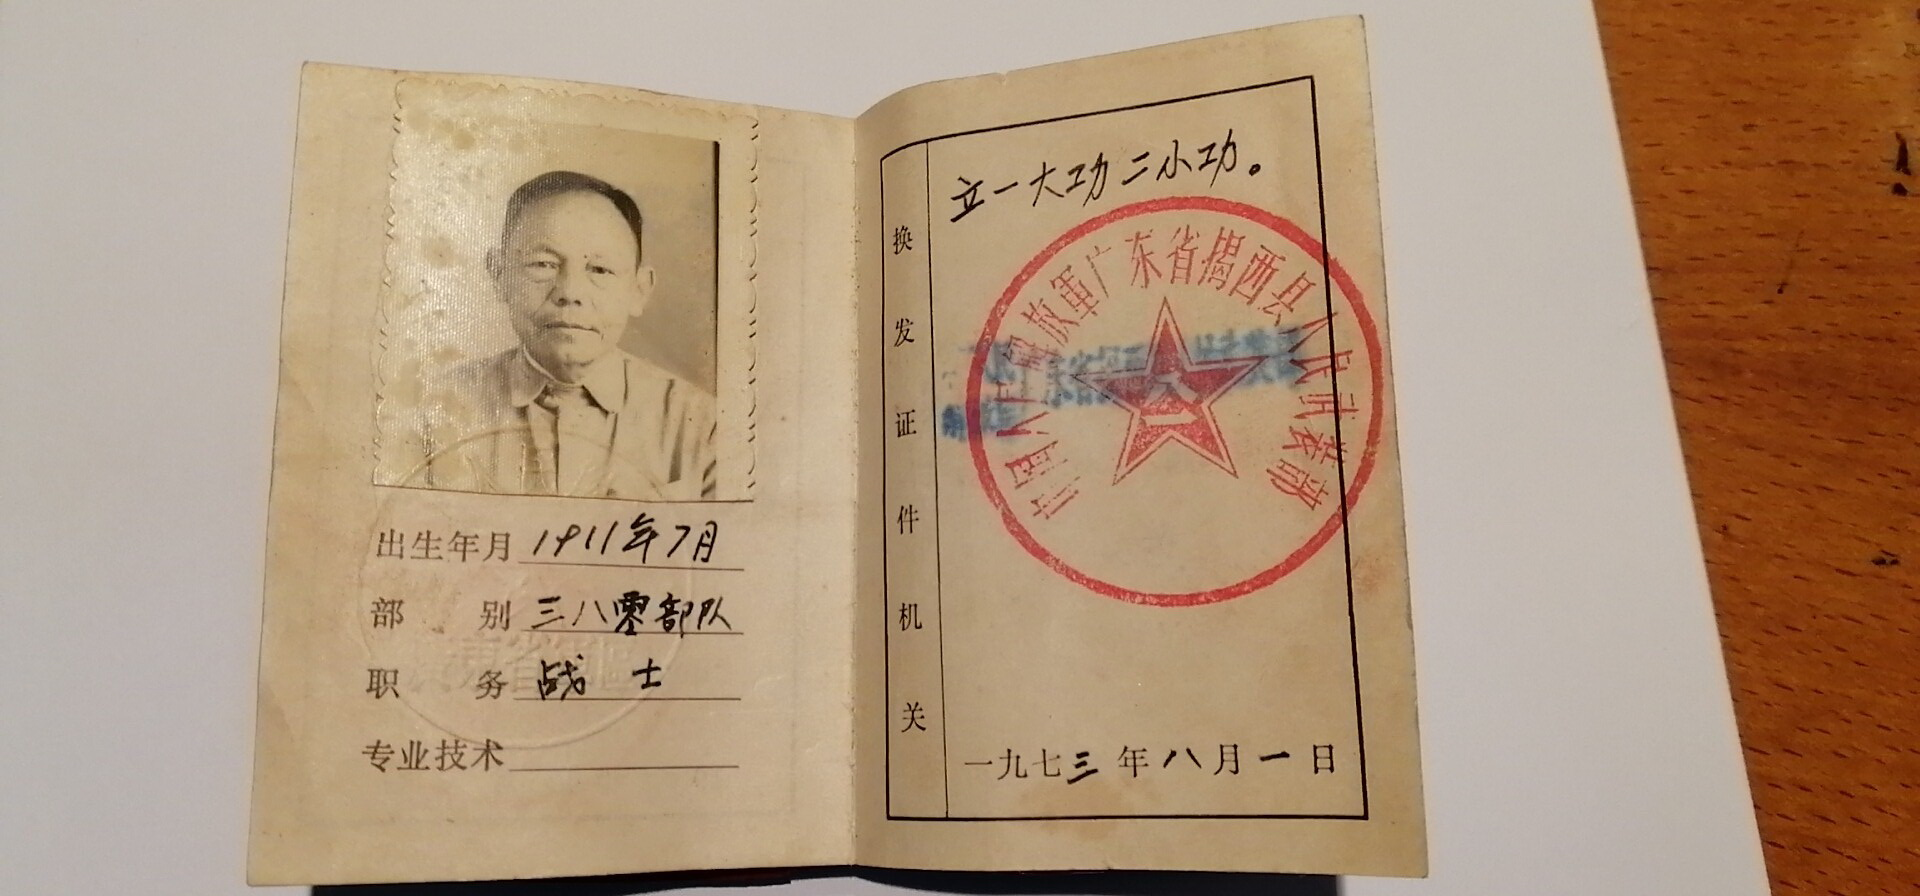 出生年月 1911年7月
部别 三八零部队
职务 战士
专业技术
广东省军区
换发证件机关
立一大功二小功。
中国人民解放軍广东省揭西县人民武装部
一九七三年八月一日